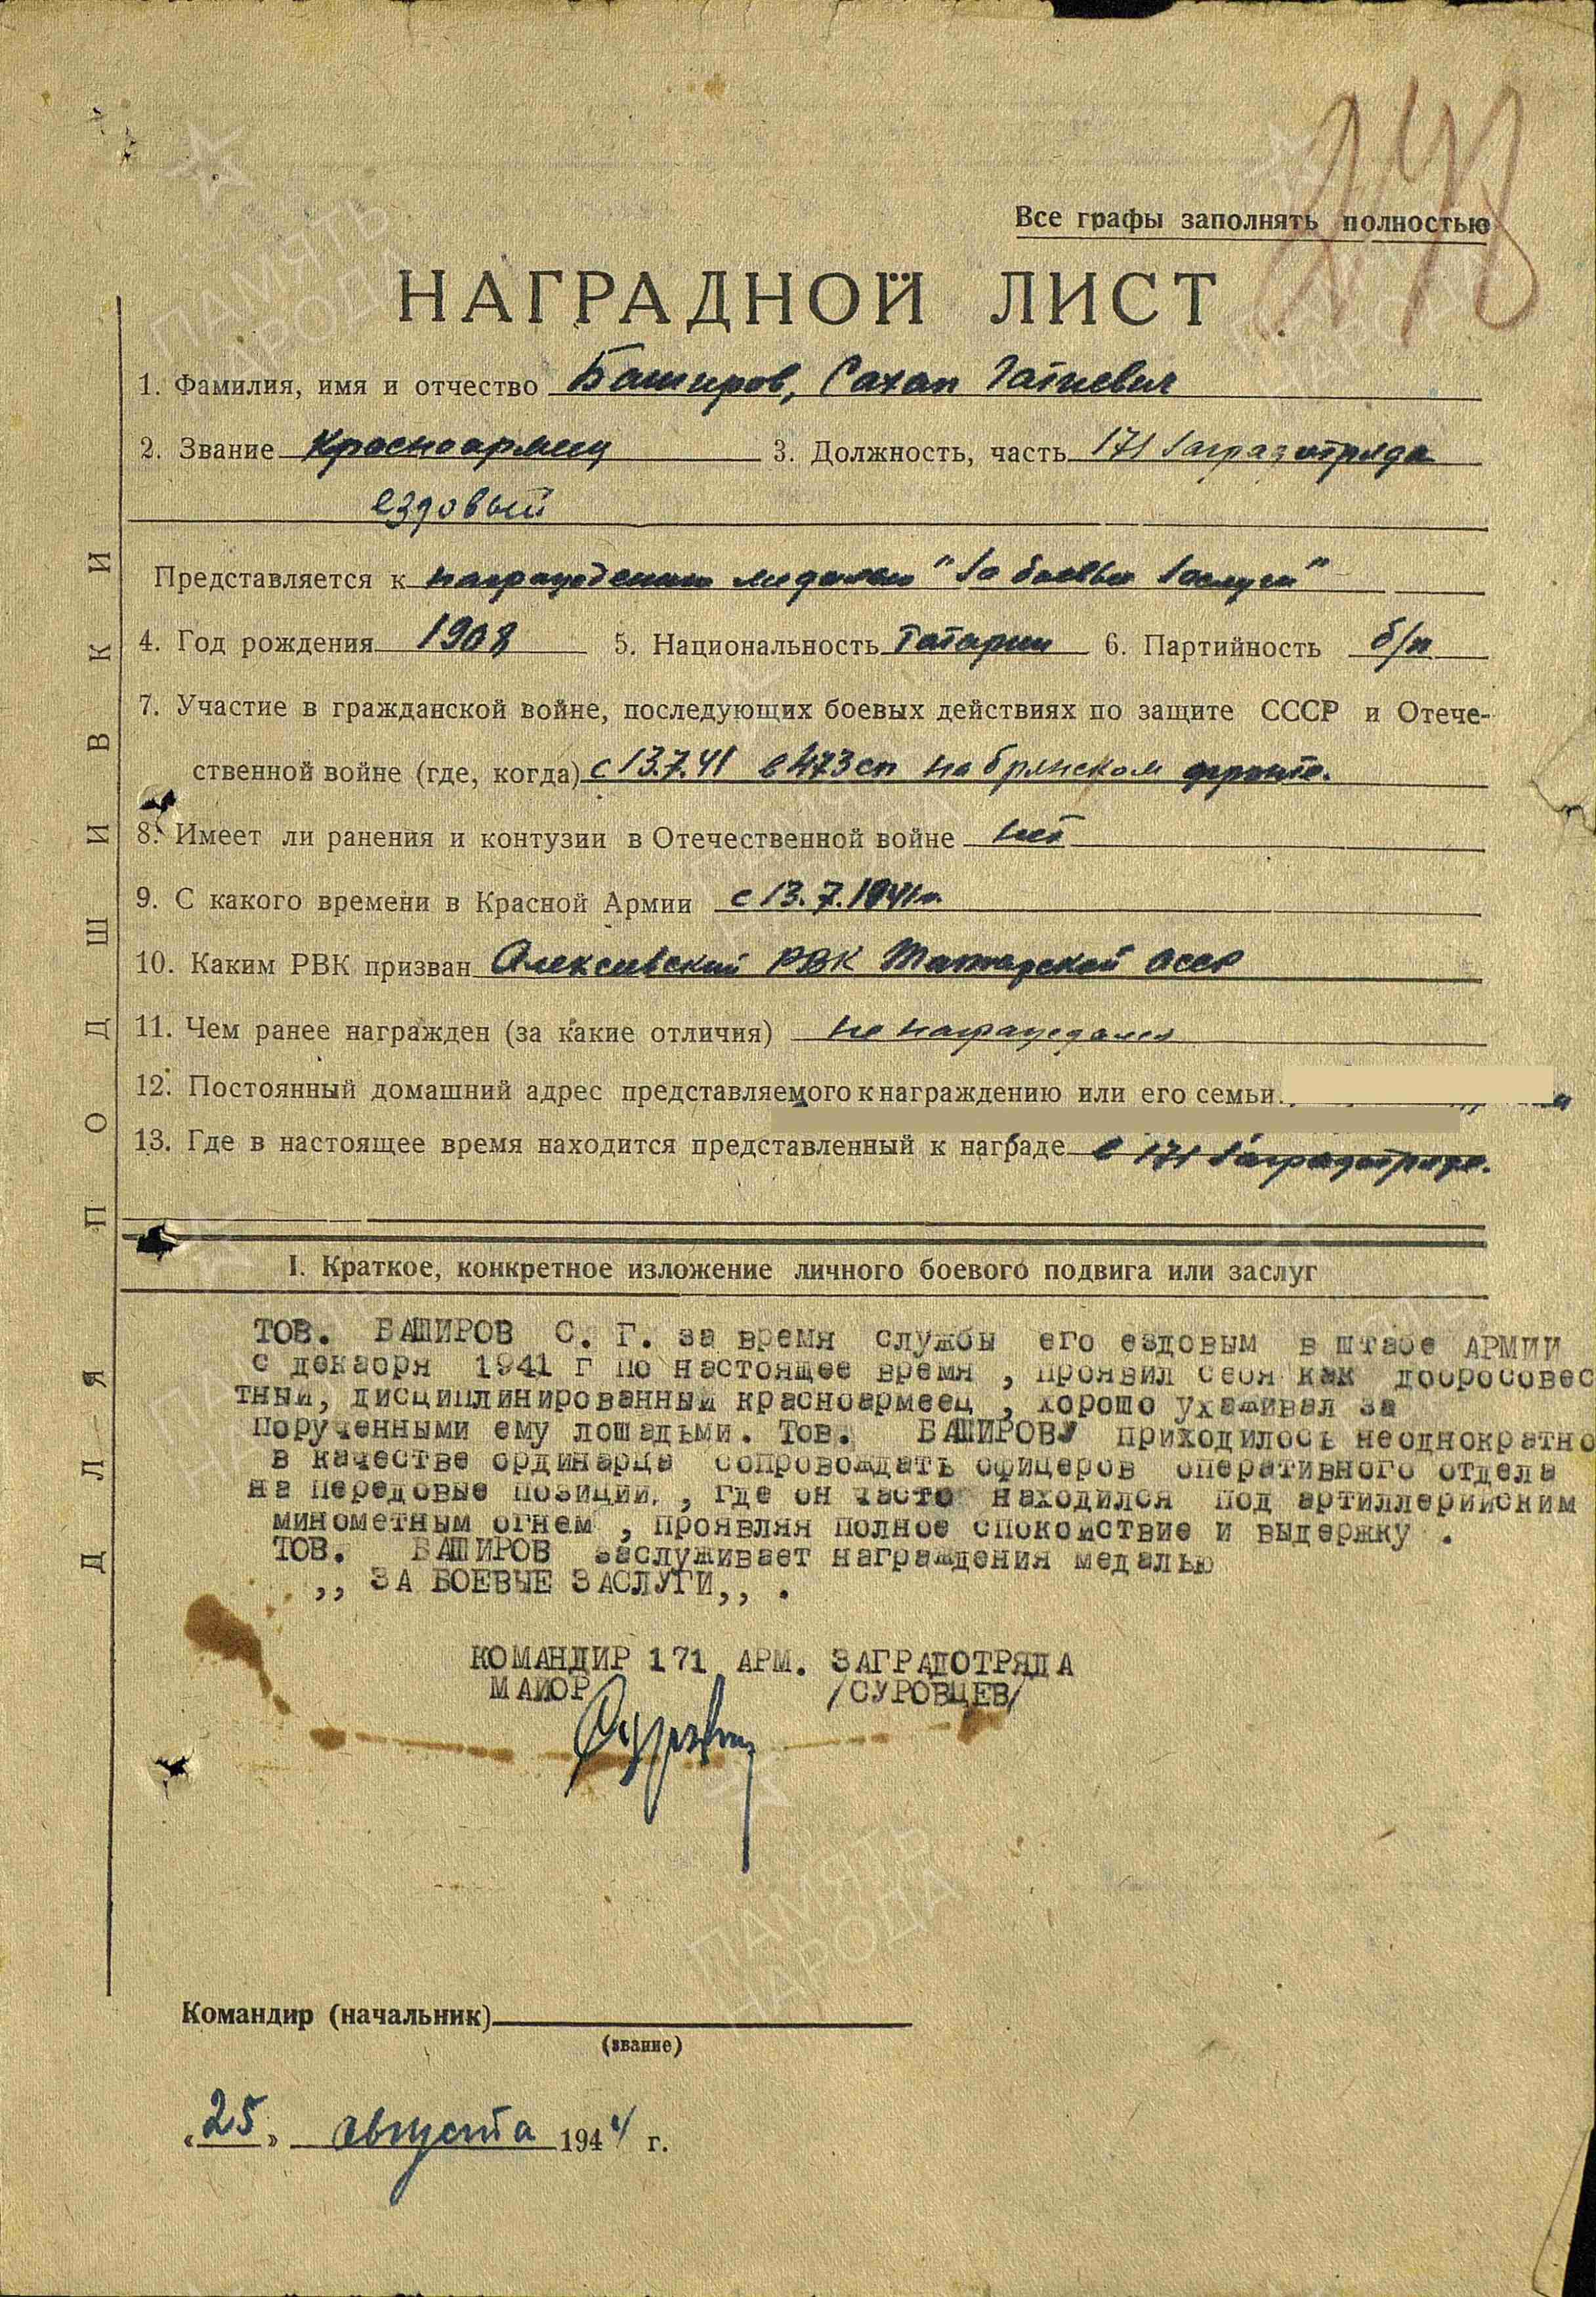 243
Все графы заполнять полностью
НАГРАДНОЙ ЛИСТ
1. Фамилия, имя и отчество Баширов, Сахап Гатиевич
2. Звание Красноармеец 3. Должность, часть 171 Заградотряда
ездовый
Представляется к награждению медалью "За боевые заслуги"
4. Год рождения 1908 5. Национальность Татарин 6. Партийность б/п
7. Участие в гражданской войне, последующих боевых действиях по защите СССР и Отече-
ственной войне (где, когда) с 13.7.41 в 473 сп на брянском фронте.
8. Имеет ли ранения и контузии в Отечественной войне нет
9. С какого времени в Красной Армии с 13.7.1941 г.
10. Каким РВК призван Алексеевский РВК Татарской АССР
11. Чем ранее награжден (за какие отличия) не награждался
12. Постоянный домашний адрес представляемого к награждению или его семьи
13. Где в настоящее время находится представленный к награде в 171 Заградотряде.
I. Краткое, конкретное изложение личного боевого подвига или заслуг
ТОВ. БАШИРОВ С. Г. за время службы его ездовым в штабе АРМИИ
с декабря 1941 г по настоящее время , проявил себя как добросовес
тный, дисциплинированный красноармеец , хорошо ухаживал за
порученными ему лошадьми. Тов. БАШИРОВУ приходилось неоднократно
в качестве ординарца сопровождать офицеров оперативного отдела
на передовые позиции. , где он часто находился под артиллерийским
минометным огнем , проявляя полное спокойствие и выдержку .
ТОВ. БАШИРОВ заслуживает награждения медалью
,, ЗА БОЕВЫЕ ЗАСЛУГИ,, .
КОМАНДИР 171 АРМ. ЗАГРАДОТРЯДА
МАЙОР /СУРОВЦЕВ/
Командир (начальник)
(звание)
«25» августа 1944 г.
ДЛЯ ПОДШИВКИ
ПАМЯТЬ НАРОДА